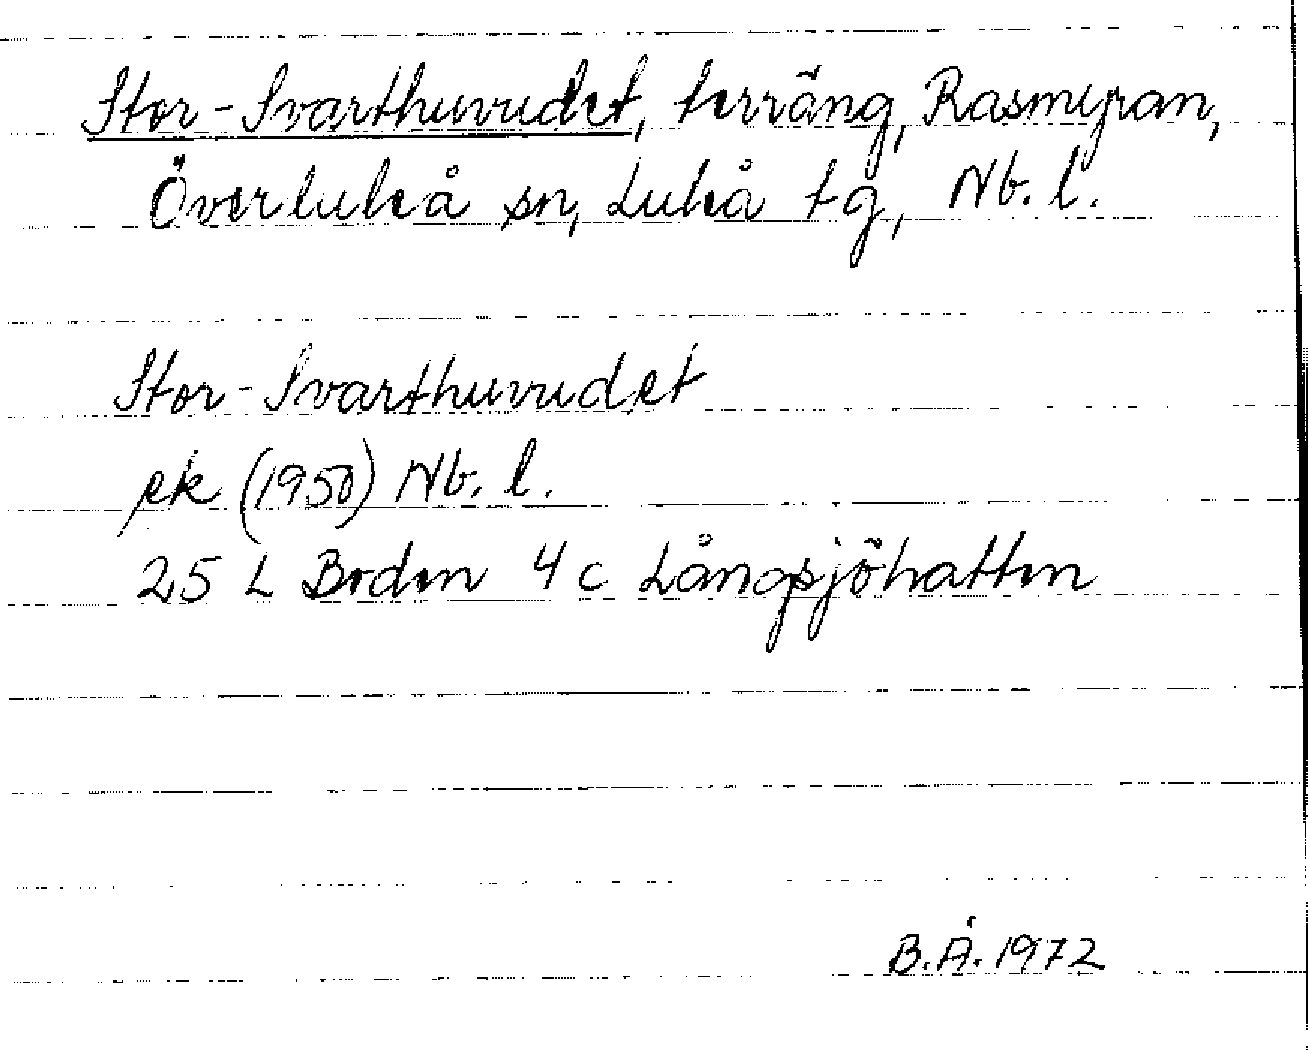 Stor-Svarthuvudet, terräng, Rasmyran,
Överluleå sn, Luleå tg, Nb. l.
Stor-Svarthuvudet
ek (1950) Nb. l.
25 L Boden 4 c Långsjöhatten
B.Å. 1972